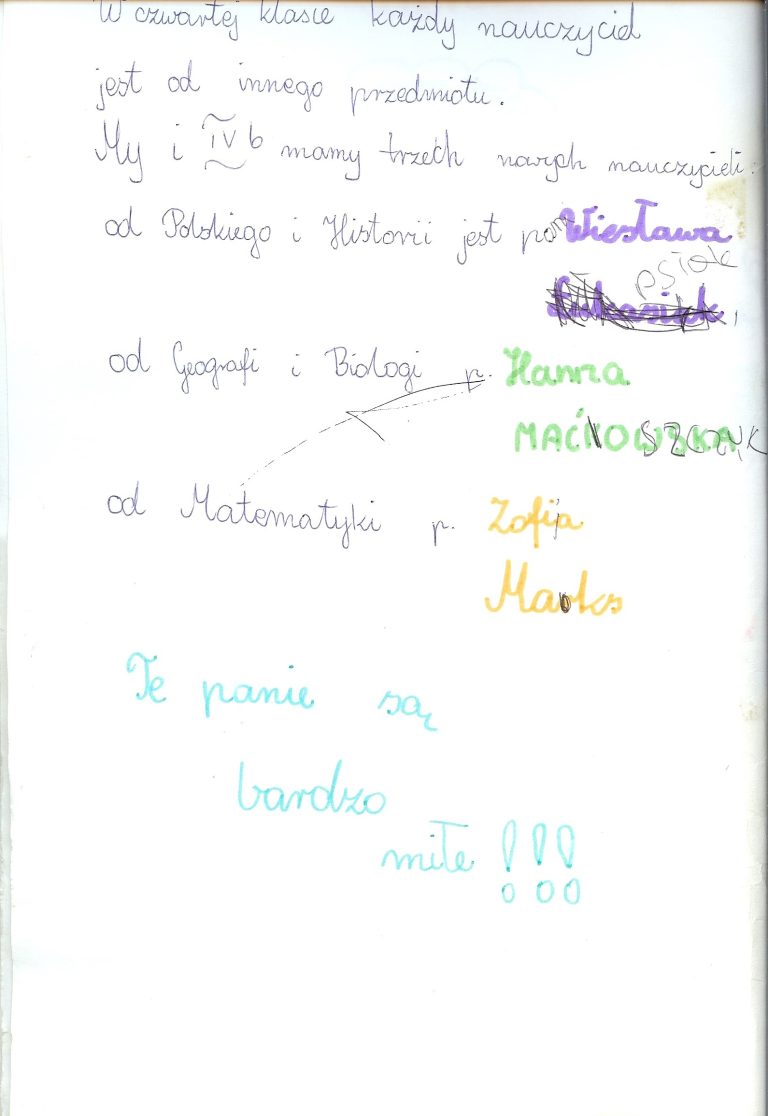 W czwartej klasie każdy nauczyciel
jest od innego przedmiotu.
My i IV b mamy trzech nowych nauczycieli:
od Polskiego i Historii jest pani Wiesława
psiok
od Geografi i Biologi p. Hanna
MAĆKOWSKA SZCZ
od Matematyki p. Zofija
Marks
Te panie są
bardzo
miłe !!!